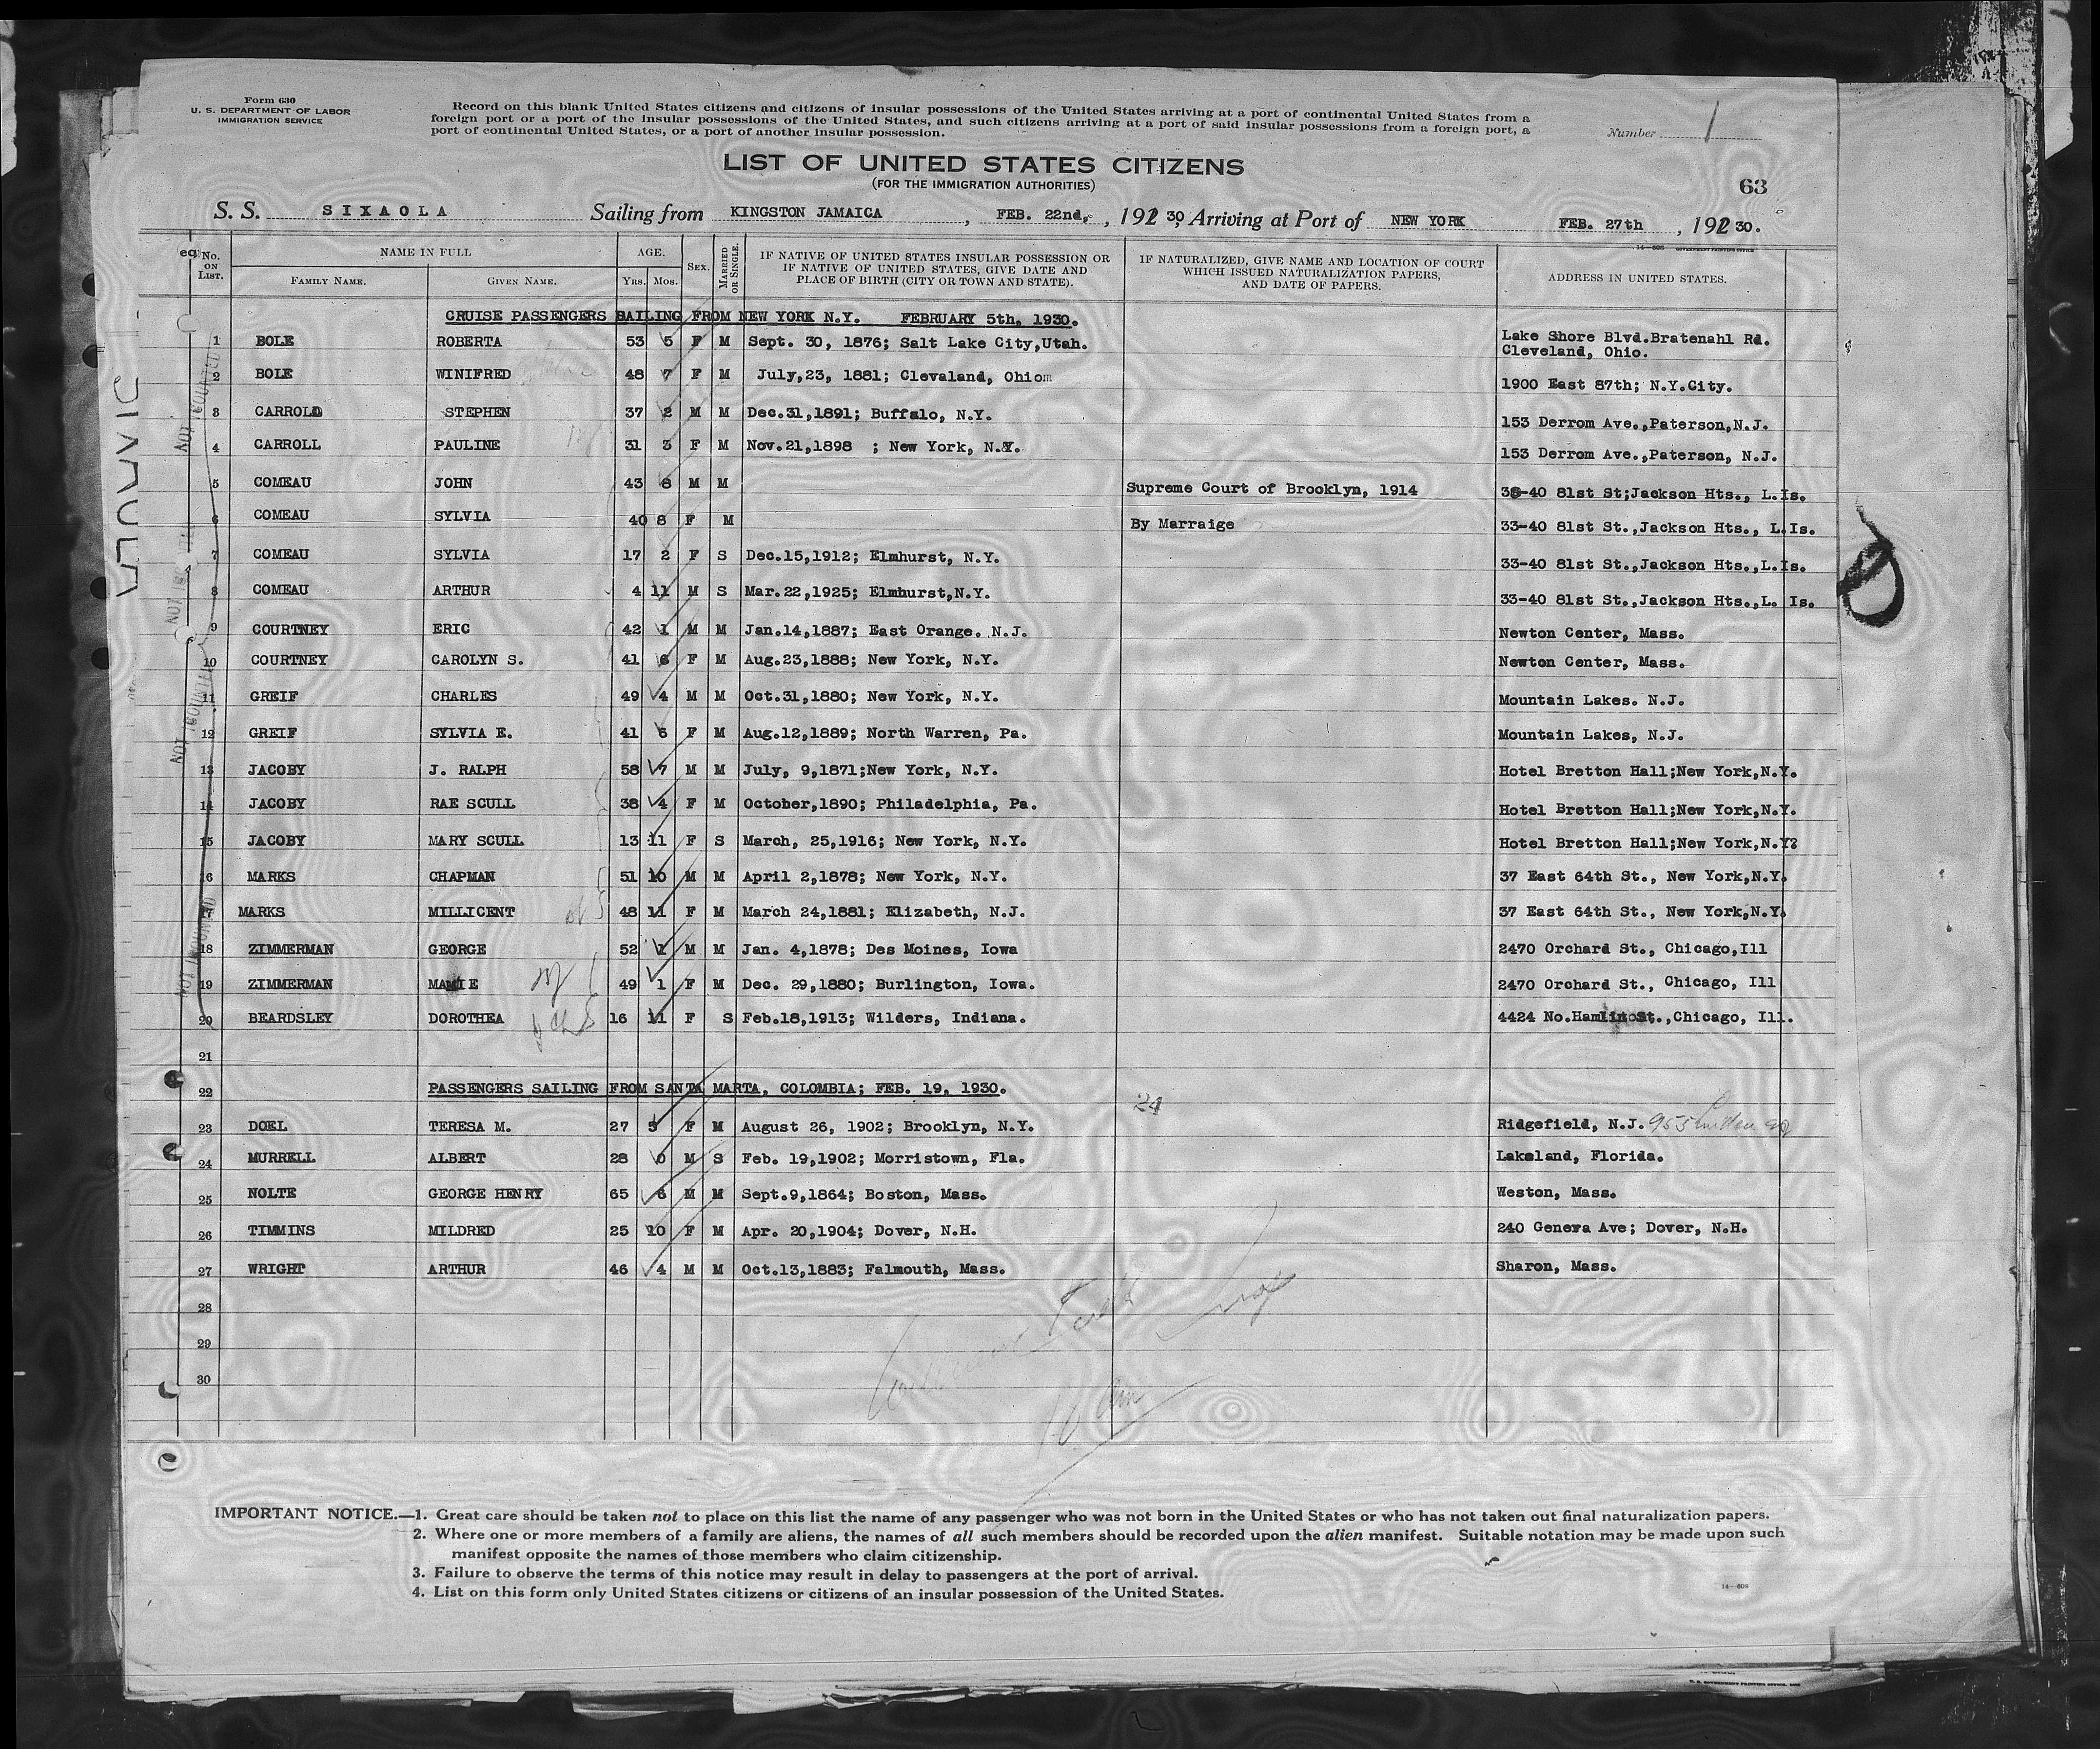 Form 630
U. S. DEPARTMENT OF LABOR
IMMIGRATION SERVICE
Record on this blank United States citizens and citizens of insular possessions of the United States arriving at a port of continental United States from a
foreign port or a port of the insular possessions of the United States, and such citizens arriving at a port of said insular possessions from a foreign port, a
port of continental United States, or a port of another insular possession.
Number 1
LIST OF UNITED STATES CITIZENS
(FOR THE IMMIGRATION AUTHORITIES)
63
S. S. SIXAOLA Sailing from KINGSTON JAMAICA, FEB. 22nd, 192 30, Arriving at Port of NEW YORK FEB. 27th, 192 30.
14—608 GOVERNMENT PRINTING OFFICE
No. ON LIST. NAME IN FULL FAMILY NAME. GIVEN NAME. AGE. YRS. MOS. SEX. MARRIED OR SINGLE. IF NATIVE OF UNITED STATES INSULAR POSSESSION OR IF NATIVE OF UNITED STATES, GIVE DATE AND PLACE OF BIRTH (CITY OR TOWN AND STATE). IF NATURALIZED, GIVE NAME AND LOCATION OF COURT WHICH ISSUED NATURALIZATION PAPERS, AND DATE OF PAPERS. ADDRESS IN UNITED STATES.
CRUISE PASSENGERS SAILING FROM NEW YORK N.Y. FEBRUARY 5th, 1930.
1 BOLE ROBERTA 53 5 F M Sept. 30, 1876; Salt Lake City,Utah. Lake Shore Blvd.Bratenahl Rd.
Cleveland, Ohio.
2 BOLE WINIFRED 48 7 F M July,23, 1881; Clevaland, Ohio 1900 East 87th; N.Y.City.
3 CARROLL STEPHEN 37 2 M M Dec.31,1891; Buffalo, N.Y. 153 Derrom Ave.,Paterson,N.J.
4 CARROLL PAULINE 31 3 F M Nov.21,1898 ; New York, N.Y. 153 Derrom Ave.,Paterson, N.J.
5 COMEAU JOHN 43 8 M M Supreme Court of Brooklyn, 1914 33-40 81st St;Jackson Hts., L.Is.
6 COMEAU SYLVIA 40 8 F M By Marraige 33-40 81st St.,Jackson Hts., L.Is.
7 COMEAU SYLVIA 17 2 F S Dec.15,1912; Elmhurst, N.Y. 33-40 81st St.,Jackson Hts.,L.Is.
8 COMEAU ARTHUR 4 11 M S Mar.22,1925; Elmhurst,N.Y. 33-40 81st St.,Jackson Hts.,L. Is.
9 COURTNEY ERIC 42 1 M M Jan.14,1887; East Orange. N.J. Newton Center, Mass.
10 COURTNEY CAROLYN S. 41 6 F M Aug.23,1888; New York, N.Y. Newton Center, Mass.
11 GREIF CHARLES 49 4 M M Oct.31,1880; New York, N.Y. Mountain Lakes. N.J.
12 GREIF SYLVIA E. 41 6 F M Aug.12,1889; North Warren, Pa. Mountain Lakes, N.J.
13 JACOBY J. RALPH 58 7 M M July, 9,1871;New York, N.Y. Hotel Bretton Hall;New York,N.Y.
14 JACOBY RAE SCULL 38 4 F M October,1890; Philadelphia, Pa. Hotel Bretton Hall;New York,N.Y.
15 JACOBY MARY SCULL 13 11 F S March, 25,1916; New York, N.Y. Hotel Bretton Hall;New York,N.Y?
16 MARKS CHAPMAN 51 10 M M April 2,1878; New York, N.Y. 37 East 64th St., New York,N.Y.
17 MARKS MILLICENT 48 11 F M March 24,1881; Elizabeth, N.J. 37 East 64th St., New York,N.Y.
18 ZIMMERMAN GEORGE 52 1 M M Jan. 4,1878; Des Moines, Iowa 2470 Orchard St., Chicago,Ill
19 ZIMMERMAN MAMIE 49 1 F M Dec. 29,1880; Burlington, Iowa. 2470 Orchard St., Chicago, Ill
20 BEARDSLEY DOROTHEA 16 11 F S Feb.18,1913; Wilders, Indiana. 4424 No.Hamlin St.,Chicago, Ill.
21
22 PASSENGERS SAILING FROM SANTA MARTA, COLOMBIA; FEB. 19, 1930.
24
23 DOEL TERESA M. 27 5 F M August 26, 1902; Brooklyn, N.Y. Ridgefield, N.J. 955 Linden
24 MURRELL ALBERT 28 0 M S Feb. 19,1902; Morristown, Fla. Lakeland, Florida.
25 NOLTE GEORGE HENRY 65 6 M M Sept.9,1864; Boston, Mass. Weston, Mass.
26 TIMMINS MILDRED 25 10 F M Apr. 20,1904; Dover, N.H. 240 Geneva Ave; Dover, N.H.
27 WRIGHT ARTHUR 46 4 M M Oct.13,1883; Falmouth, Mass. Sharon, Mass.
28
29
30
IMPORTANT NOTICE.—1. Great care should be taken not to place on this list the name of any passenger who was not born in the United States or who has not taken out final naturalization papers.
2. Where one or more members of a family are aliens, the names of all such members should be recorded upon the alien manifest. Suitable notation may be made upon such
manifest opposite the names of those members who claim citizenship.
3. Failure to observe the terms of this notice may result in delay to passengers at the port of arrival.
4. List on this form only United States citizens or citizens of an insular possession of the United States.
14—608